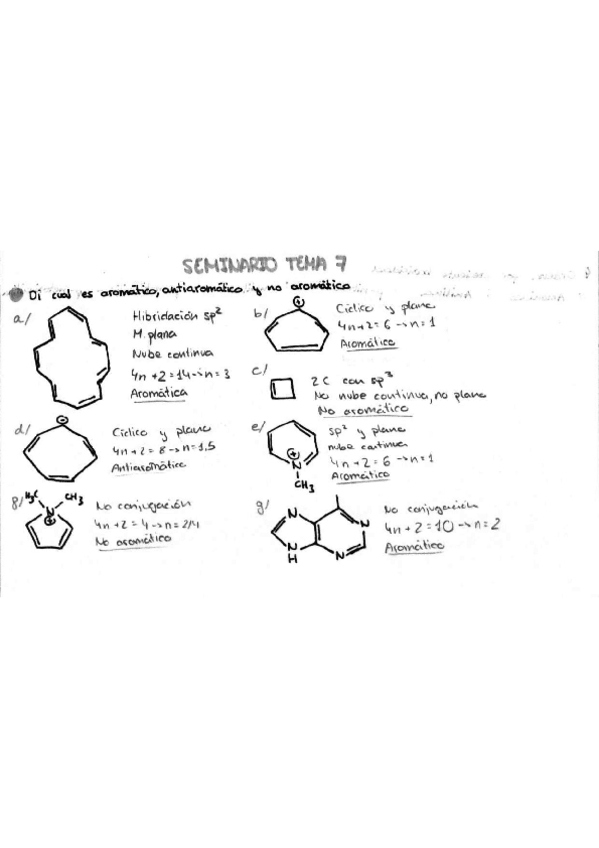 SEMINARIO TEMA 7
Di cual es aromático, antiaromático y no aromático
a/
Hibridación sp²
M. plana
Nube continua
4n+2=14→n=3
Aromática
b/
⊕
Cíclico y plano
4n+2=6→n=1
Aromático
c/
2 C con sp³
No nube continua, no plano
No aromático
d/
⊖
Cíclico y plano
4n+2=8→n=1,5
Antiaromático
e/
N
⊕
CH₃
sp² y plano
nube continua
4n+2=6→n=1
Aromático
H₃C CH₃
N
⊕
No conjugación
4n+2=4→n=2/4
No aromático
g/
N
N
N
N
H
No conjugación
4n+2=10→n=2
Aromático